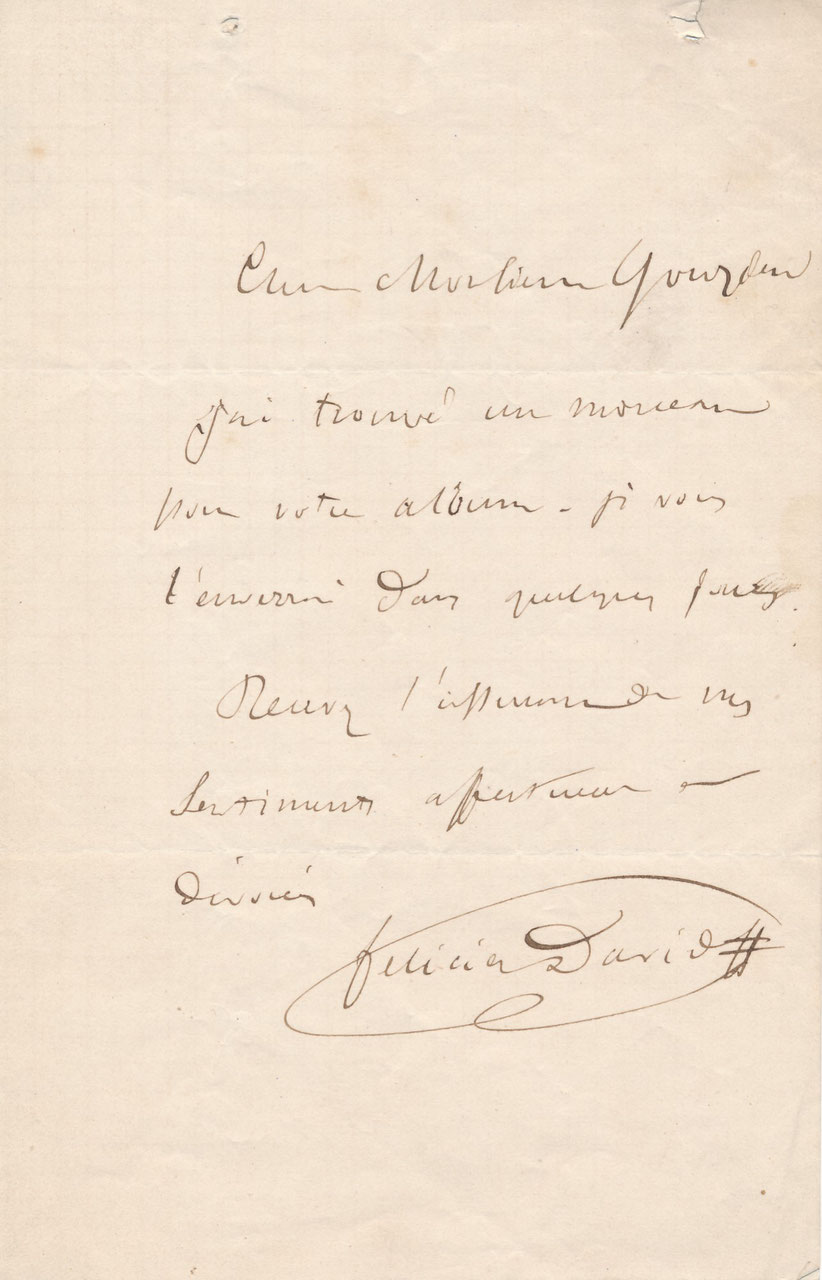 Cher Monsieur Gouzien
j'ai trouvé un morceau
pour votre album - je vous
l'enverrai dans quelques jours.
Recevez l'assurance de mes
sentiments affectueux et
dévoués
Félicien David